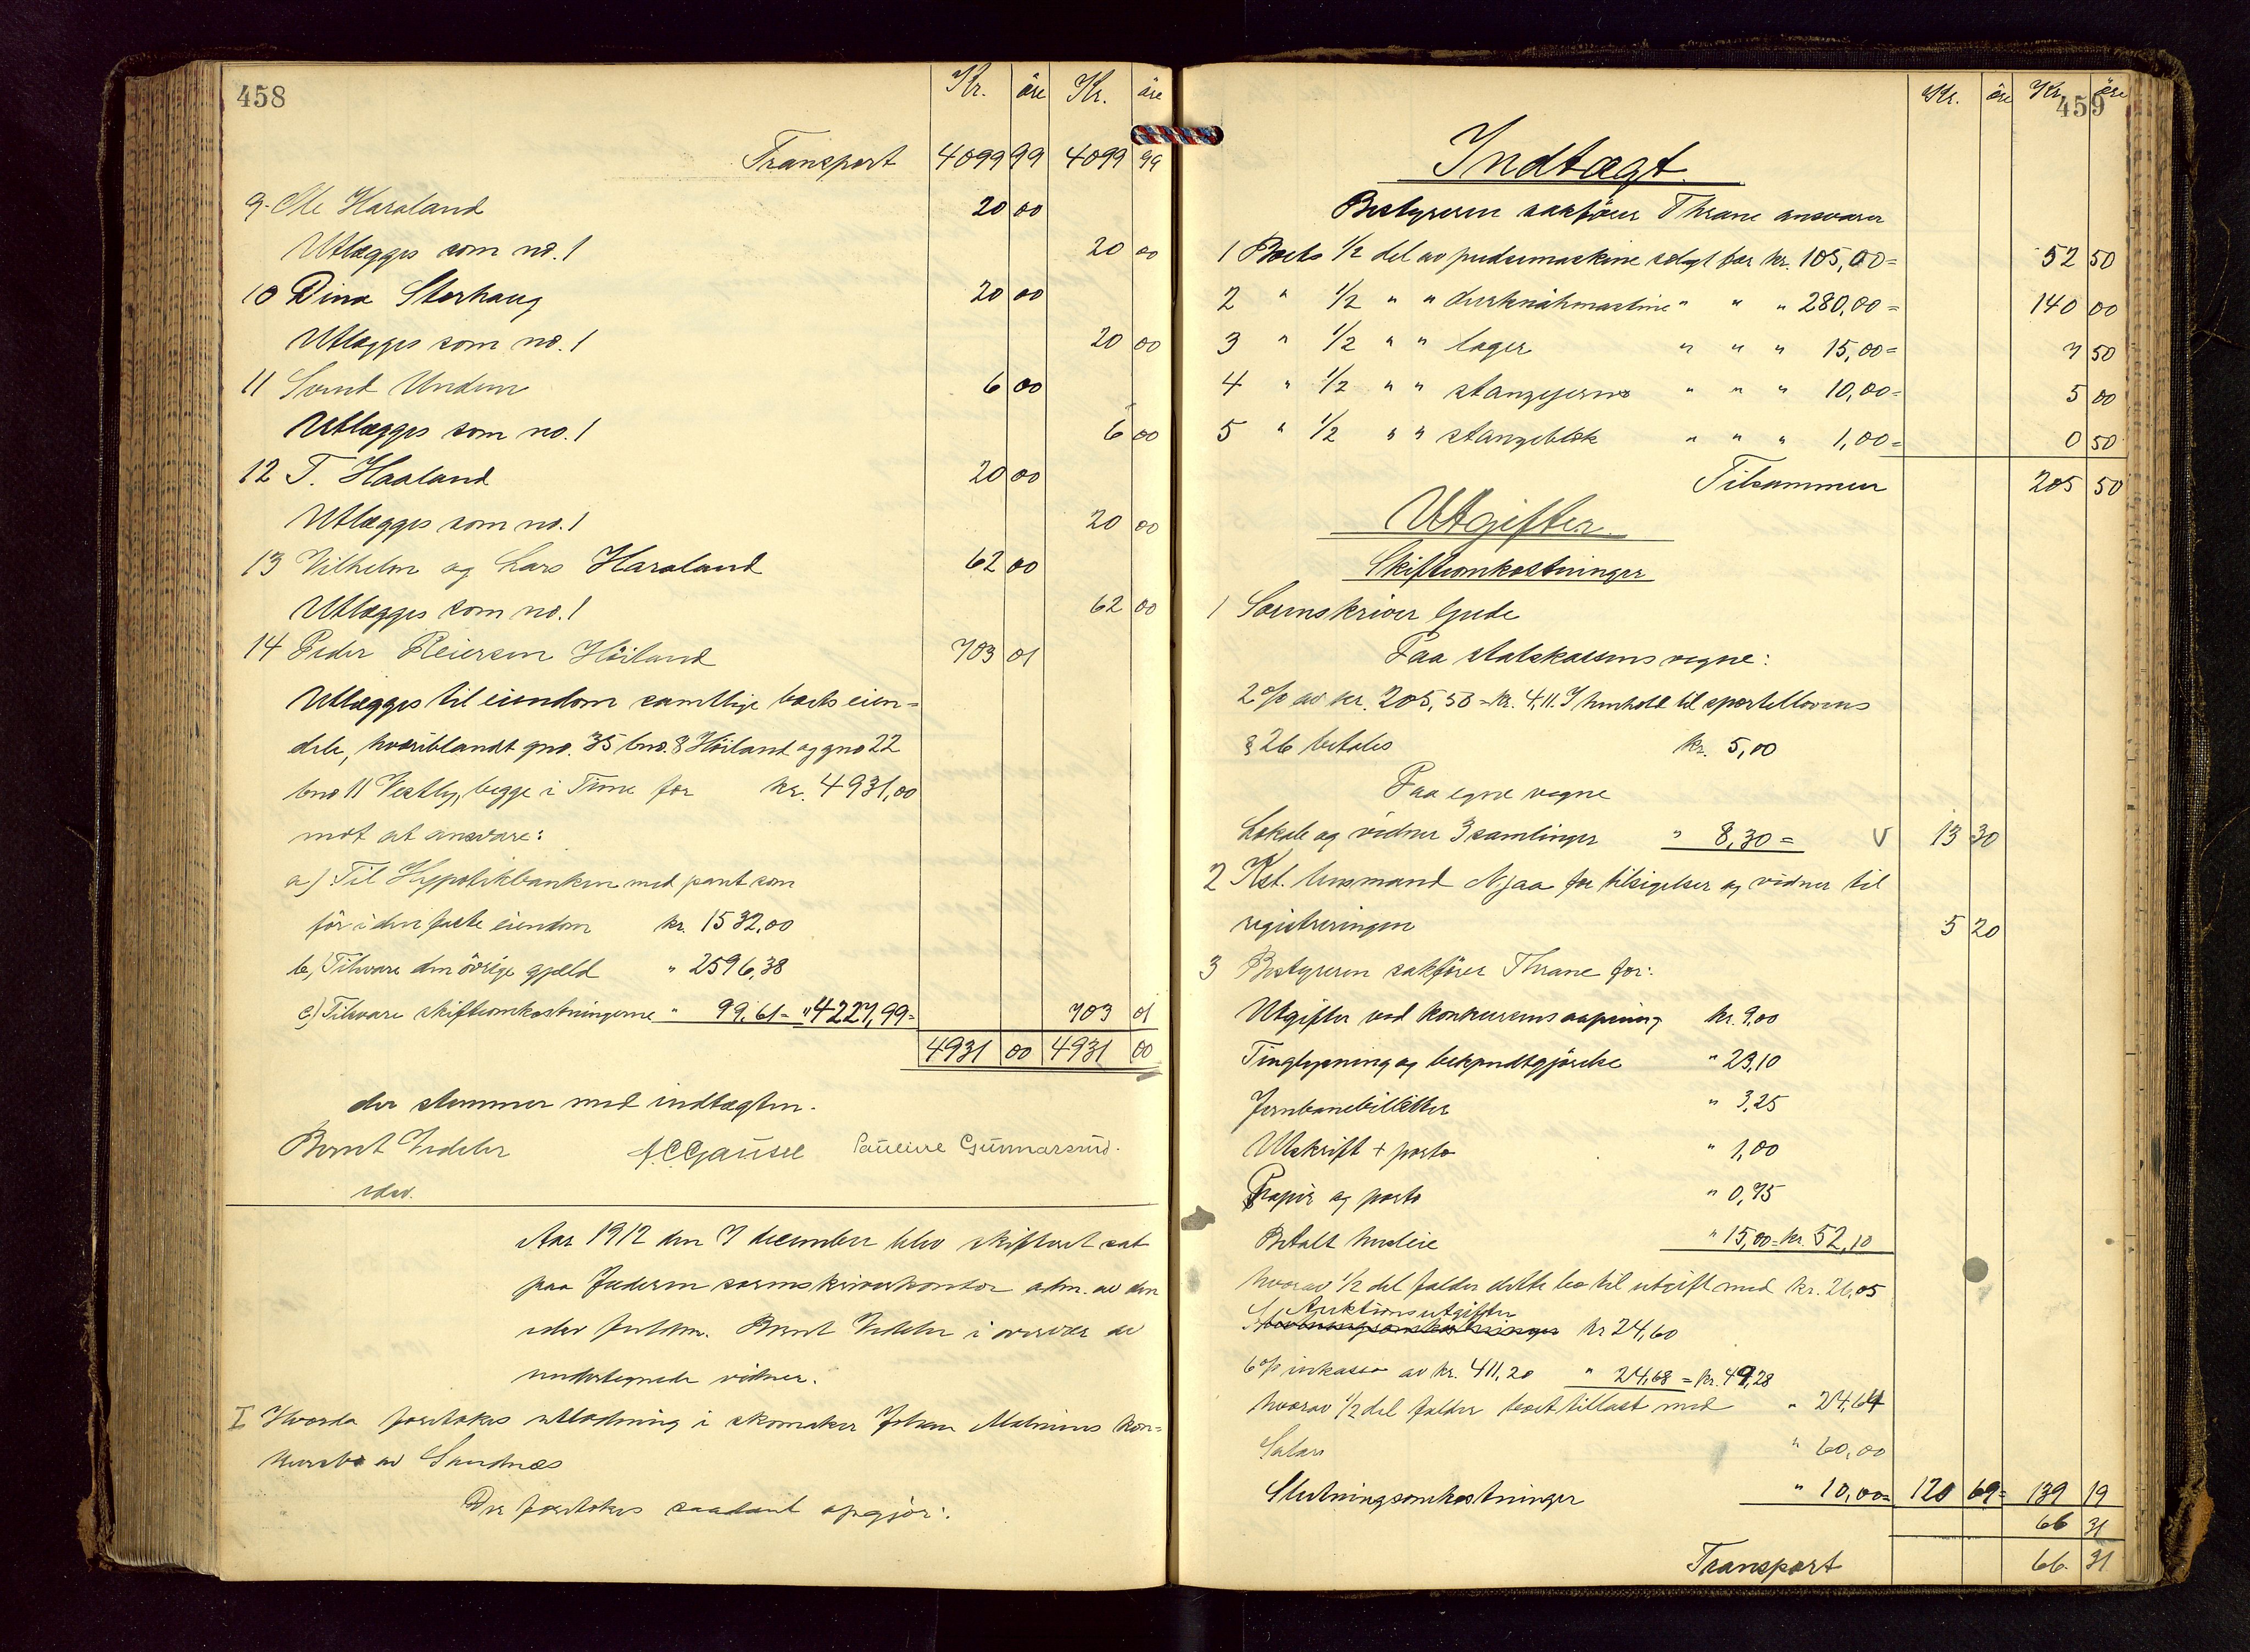 458
Kr. öre Kr. öre
Transport 4099 99 4099 99
9. Ole Haraland 20 00
Utlægges som no. 1 20 00
10 Dina Storhaug 20 00
Utlægges som no. 1 20 00
11 Svend Undem 6 00
Utlægges som no. 1 6 00
12 T. Haaland 20 00
Utlægges som no. 1 20 00
13 Vilhelm og Lars Haraland 62 00
Utlægges som no. 1 62 00
14 Peder Reiersen Höiland 703 01
Utlægges til eiendom samtlige boets eien=
dele, hvoriblandt gno. 35 bno. 8 Höiland og gno 22
bno 11 Vestly, begge i Time for kr. 4931,00
mot at ansvare:
a) Til Hypotekbanken med pant som
för i den faste eiendom kr. 1532,00
b) Tilsvare den övrige gjæld " 2596,38
c) Tilsvare skifteomkostningerne " 99,61 = " 4227,99= 703 01
4931 00 4931 00
der stemmer med indtægten.
Bernt Vedeler A.C. Gausel Pauline Gunnarsrud.
edsv.
Aar 1912 den 7 december blev skifteret sat
paa Jæderen sorenskriverkontor adm. av den
edsv fuldm. Bernt Vedeler i overvær av
undertegnede vidner.
I Hvorda foretokes utlodning i skomaker Johan Malmins kon=
kursbo av Sandnes
Der foretokes saadant opgjör:
459
Kr. öre Kr. öre
Indtægt.
Bestyreren sakförer Thrane ansvarer
1 Boets 1/2 del av pudsemaskine solgt for kr. 105,00= 52 50
2 " 1/2 " " durknähmaskine " " " 280,00= 140 00
3 " 1/2 " " lager " " " 15,00= 7 50
4 " 1/2 " " stanzejerns " " " 10,00= 5 00
5 " 1/2 " " stanzeblok " " " 1,00= 0 50
Tilsammen 205 50
Utgifter.
Skifteomkostninger
1 Sorenskriver Gjede
Paa statskassens vegne:
2 % av kr. 205,50 = kr. 4,11. I henhold til sportellovens
§ 26 betales kr. 5,00
Paa egne vegne
Lokale og vidner 3 samlinger " 8,30 = V 13 30
2 Kst. lensmand Njaa for tilsigelser og vidner til
registreringen 5 20
3 Bestyreren sakförer Thrane for:
Utgifter ved konkursens aapning kr. 9,00
Tinglysning og bekjendtgjörelse " 23,10
Jernbanebilletter " 3,25
Utskrift + porto " 1,00
Papir og porto " 0,75
Betalt husleie " 15,00 = kr. 52,10
hvorav 1/2 del falder dette bo til utgift med kr. 26,05
Auktionsutgifter
kr 24,60
6 % inkasso av kr. 411,20 " 24,68 = kr. 49,28
hvorav 1/2 del falder boet til last med " 24,64
Salær " 60,00
Slutningsomkostninger " 10,00= 120 69= 139 19
66 31
Transport 66. 31